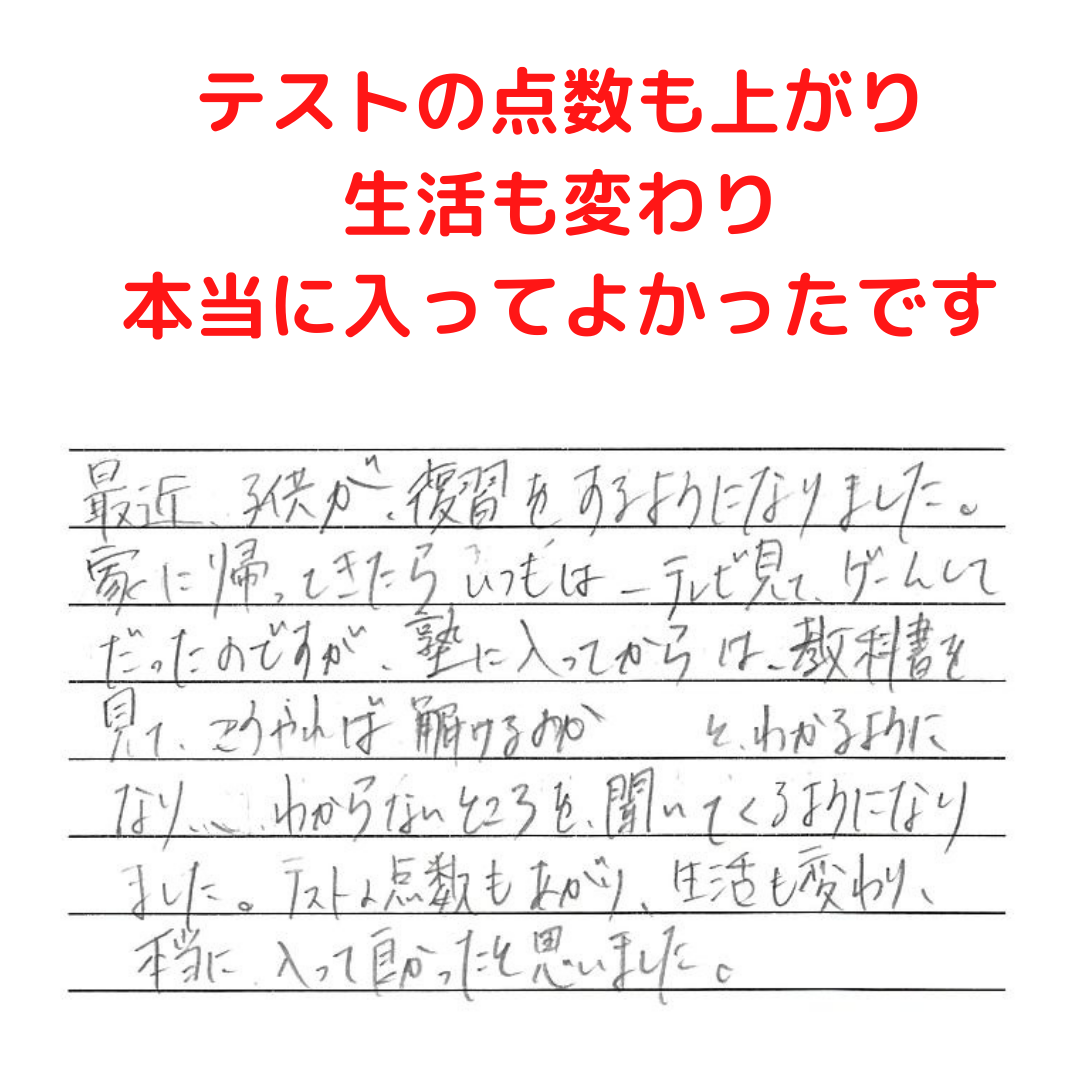 テストの点数も上がり
生活も変わり
本当に入ってよかったです
最近、子供が、復習をするようになりました。
家に帰ってきたらいつもは一テレビ見て、ゲームして
だったのですが、塾に入ってからは、教科書を
見て、こうやれば解けるのか と、わかるように
なり、、、わからないところを、聞いてくるようになり
ました。テストの点数もあがり、生活も変わり、
本当に入って良かったと思いました。